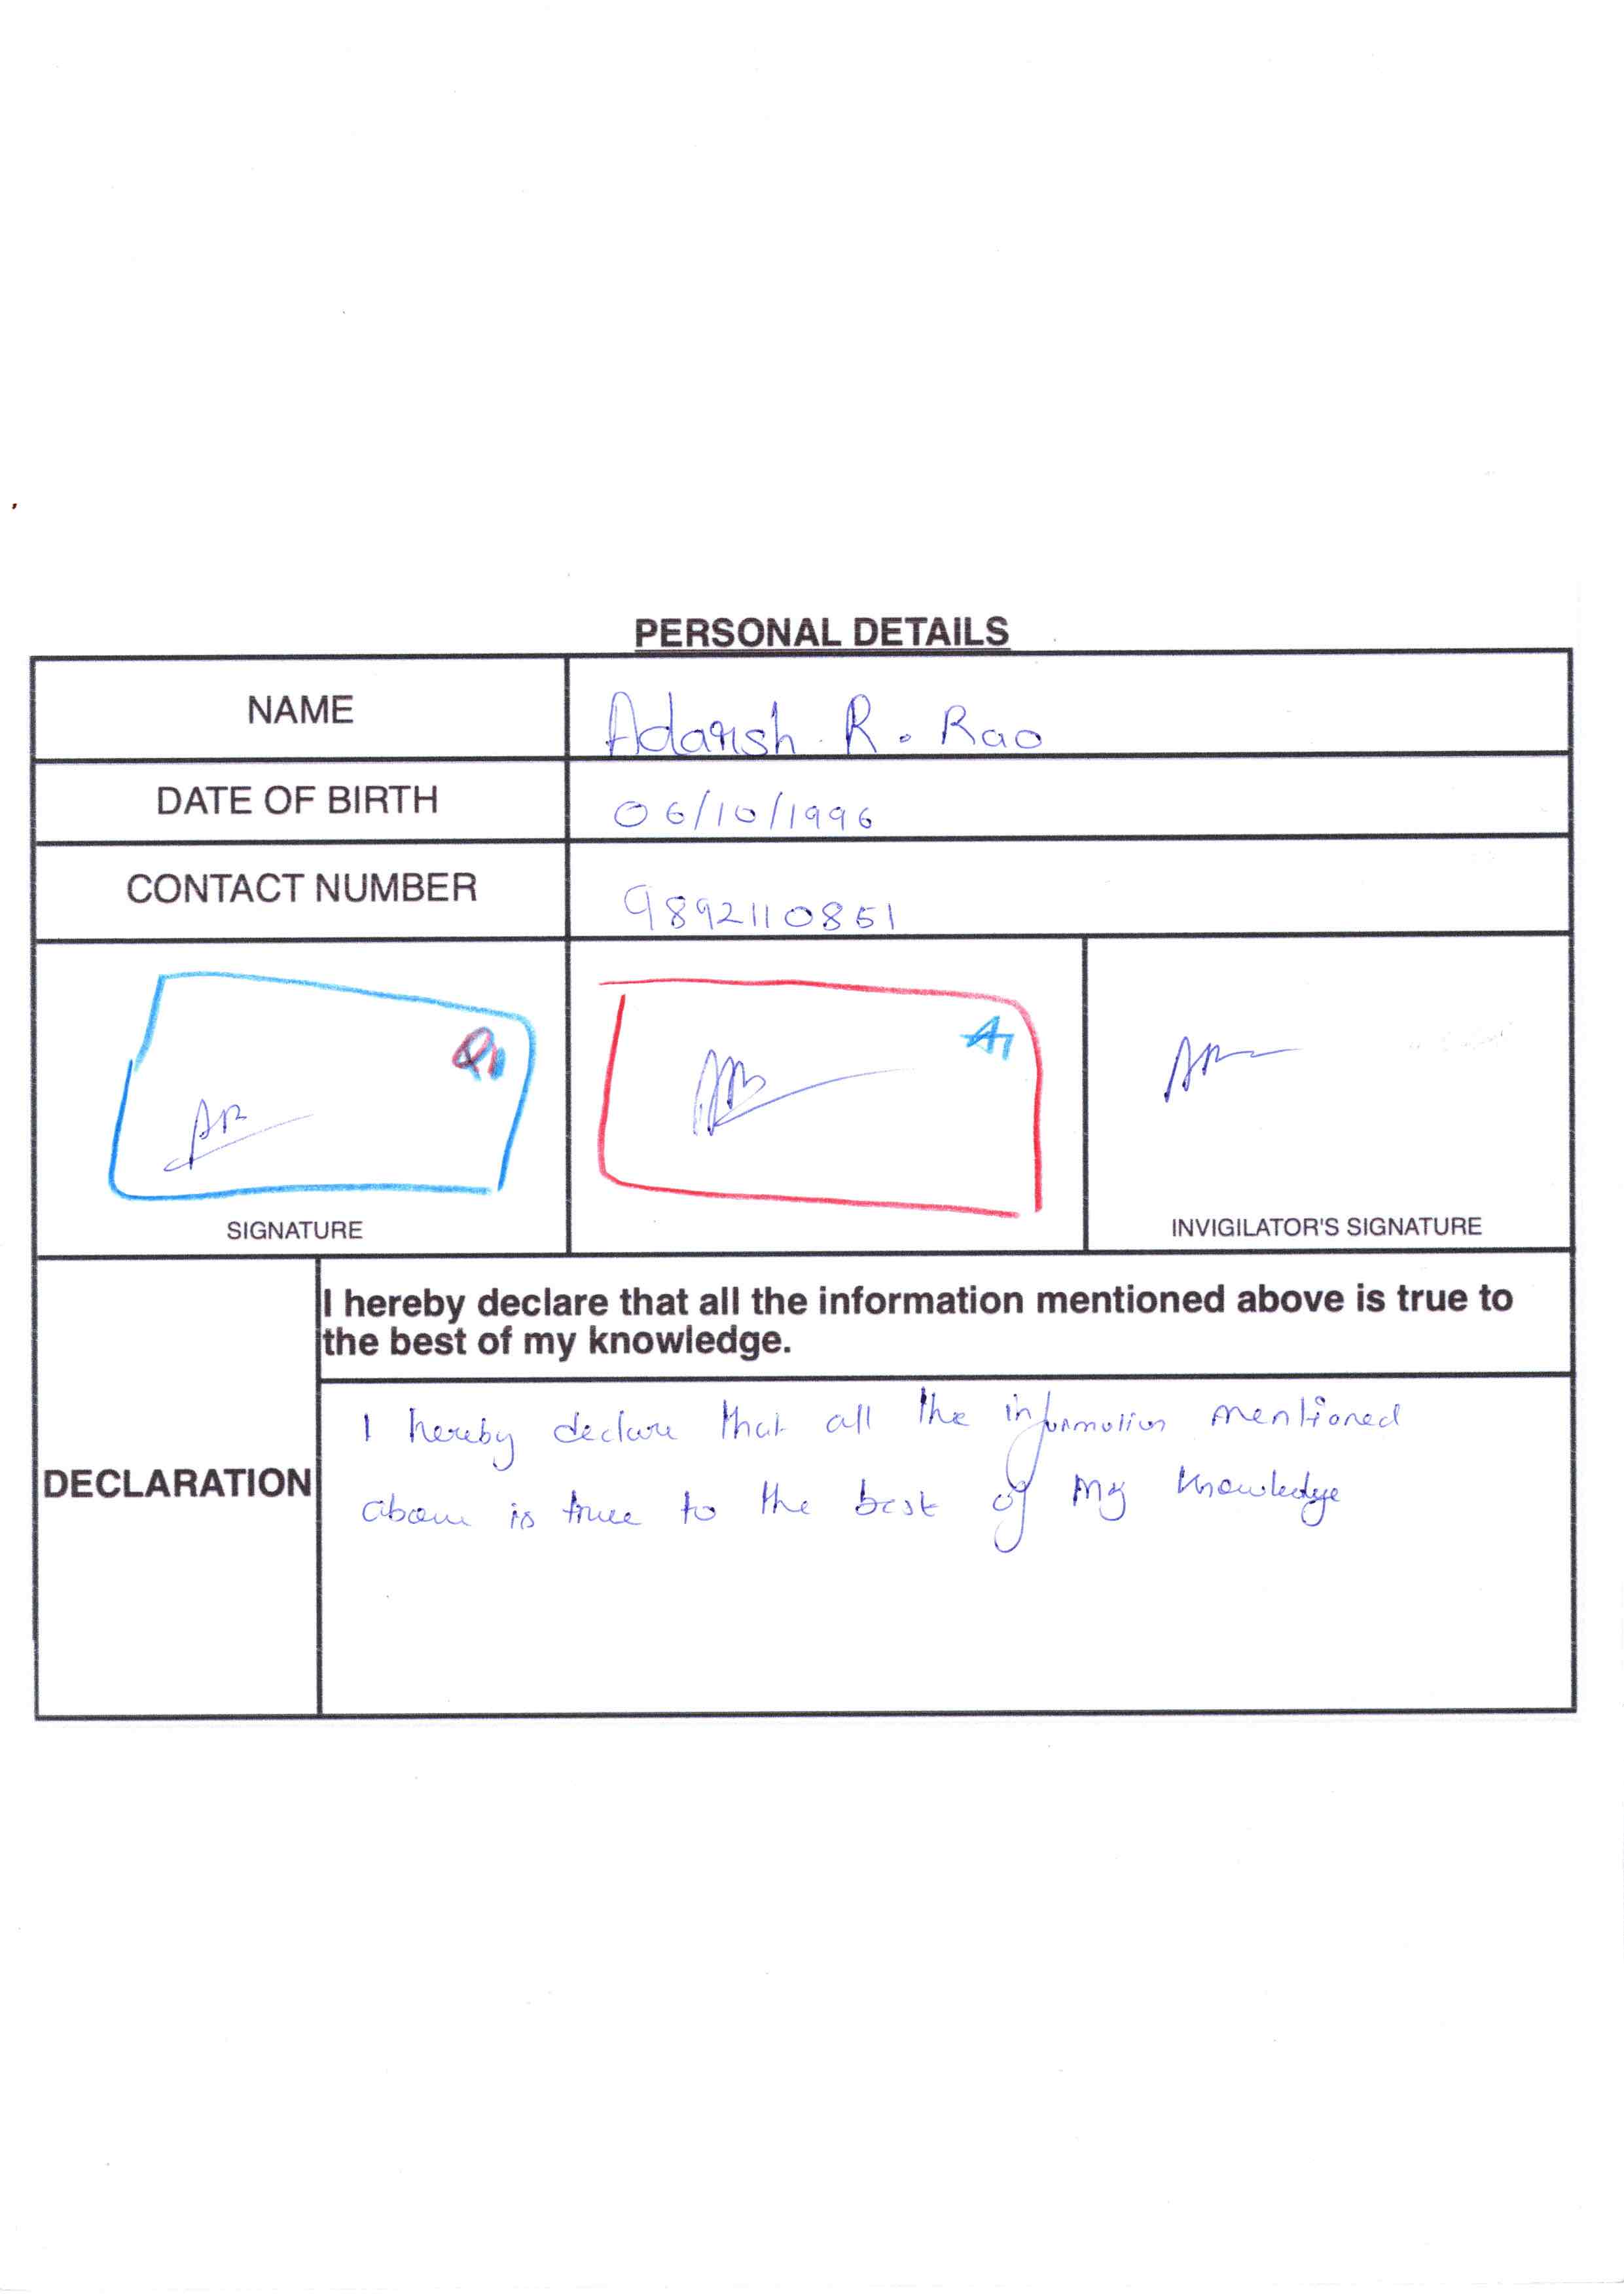 PERSONAL DETAILS
NAME
Adarsh R. Rao
DATE OF BIRTH
06/10/1996
CONTACT NUMBER
9892110851
Q1
A1
SIGNATURE
INVIGILATOR'S SIGNATURE
DECLARATION
I hereby declare that all the information mentioned above is true to
the best of my knowledge.
I hereby declare that all the information mentioned
above is true to the best of my knowledge